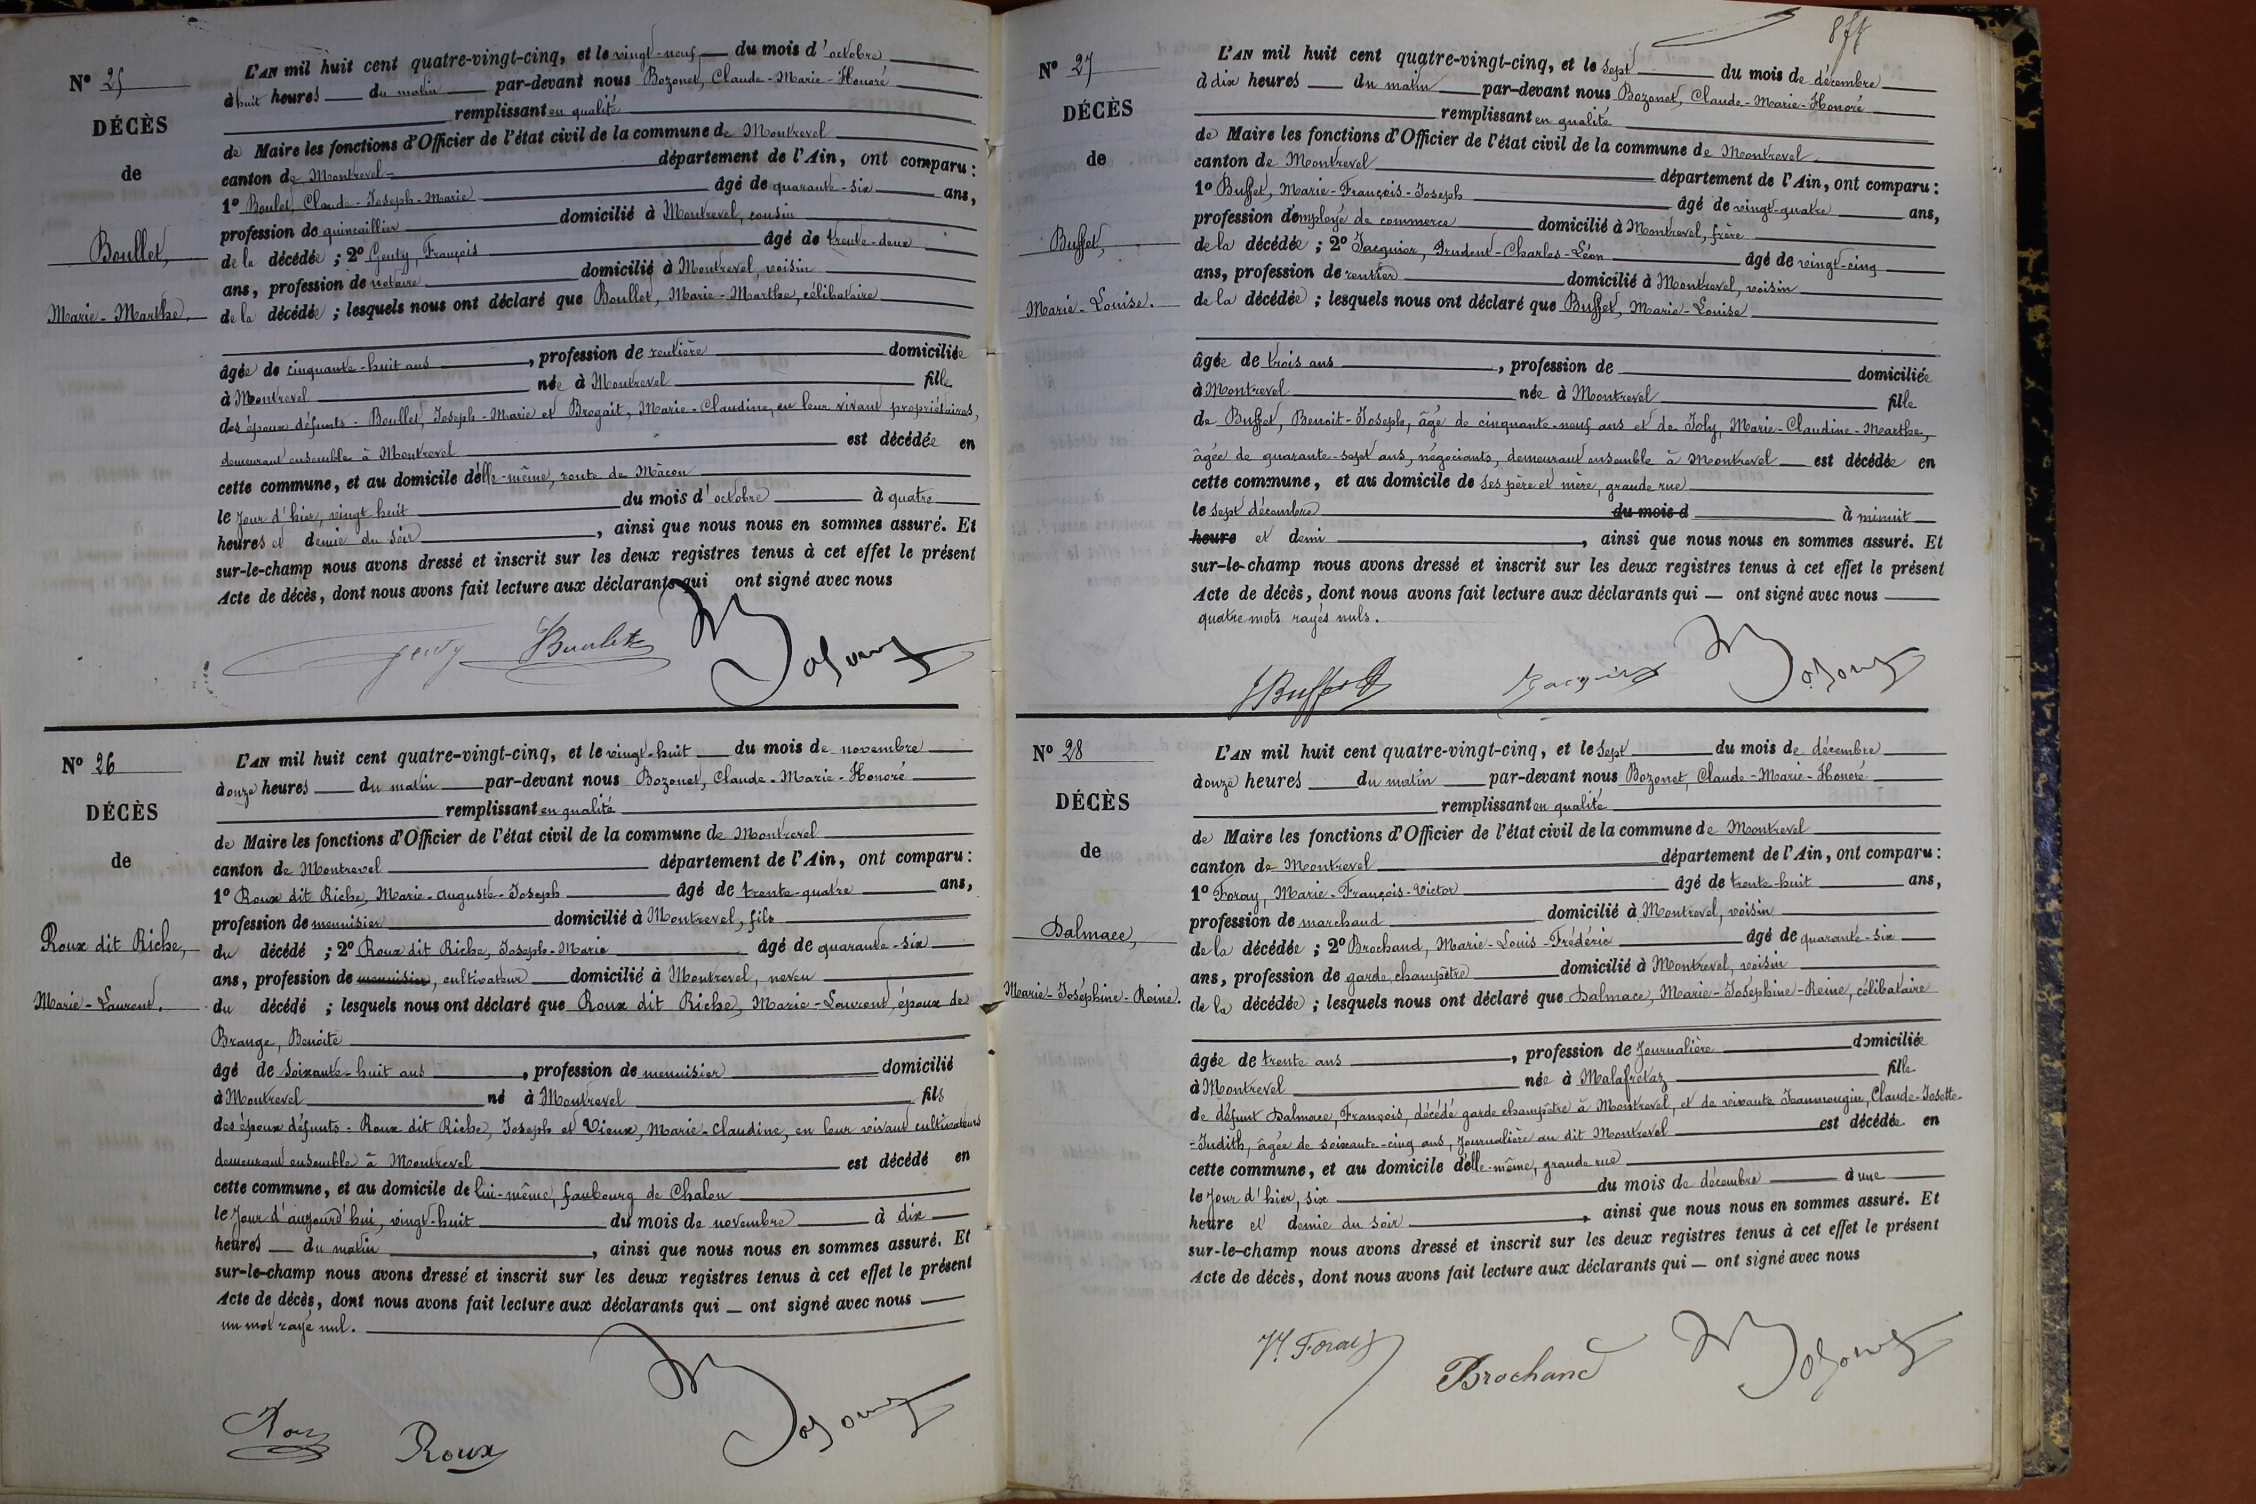 Nº 25
DÉCÈS
de
Boullet,
Marie-Marthe,
L'AN mil huit cent quatre-vingt-cinq, et le vingt-neuf du mois d'octobre,
à huit heures du matin par-devant nous Bozonet, Claude-Marie-Honoré
remplissant en qualité
de Maire les fonctions d'Officier de l'état civil de la commune de Montrevel
canton de Montrevel département de l'Ain, ont comparu :
1º Boulet, Claude-Joseph-Marie âgé de quarante-six ans,
profession de quincaillier domicilié à Montrevel, cousin
de la décédée ; 2º Genty, François âgé de trente-deux
ans, profession de notaire domicilié à Montrevel, voisin
de la décédée ; lesquels nous ont déclaré que Boullet, Marie-Marthe, célibataire
âgée de cinquante-huit ans, profession de rentière domiciliée
à Montrevel née à Montrevel fille
des époux défunts - Boullet, Joseph-Marie et Brogait, Marie-Claudine, en leur vivant propriétaires,
demeurant ensemble à Montrevel est décédée en
cette commune, et au domicile d'elle-même, route de Mâcon
le jour d'hier, vingt huit du mois d'octobre à quatre
heures et demie du soir, ainsi que nous nous en sommes assuré. Et
sur-le-champ nous avons dressé et inscrit sur les deux registres tenus à cet effet le présent
Acte de décès, dont nous avons fait lecture aux déclarants qui ont signé avec nous
Genty Boulet Bozonet
Nº 26
DÉCÈS
de
Roux dit Riche,
Marie-Laurent.
L'AN mil huit cent quatre-vingt-cinq, et le vingt-huit du mois de novembre
à onze heures du matin par-devant nous Bozonet, Claude-Marie-Honoré
remplissant en qualité
de Maire les fonctions d'Officier de l'état civil de la commune de Montrevel
canton de Montrevel département de l'Ain, ont comparu :
1º Roux dit Riche, Marie-Auguste-Joseph âgé de trente-quatre ans,
profession de menuisier domicilié à Montrevel, fils
du décédé ; 2º Roux dit Riche, Joseph-Marie âgé de quarante-six
ans, profession de menuisier, cultivateur domicilié à Montrevel, neveu
du décédé ; lesquels nous ont déclaré que Roux dit Riche, Marie-Laurent, époux de
Brange, Benoite
âgé de soixante-huit ans, profession de menuisier domicilié
à Montrevel né à Montrevel fils
des époux défunts - Roux dit Riche, Joseph et Vieux, Marie-Claudine, en leur vivant cultivateurs
demeurant ensemble à Montrevel est décédé en
cette commune, et au domicile de lui-même, faubourg de Chalon
le jour d'aujourd'hui, vingt-huit du mois de novembre à dix
heures du matin, ainsi que nous nous en sommes assuré. Et
sur-le-champ nous avons dressé et inscrit sur les deux registres tenus à cet effet le présent
Acte de décès, dont nous avons fait lecture aux déclarants qui ont signé avec nous
un mot rayé nul.
Roux Roux Bozonet
Nº 27
DÉCÈS
de
Buffet,
Marie-Louise.
L'AN mil huit cent quatre-vingt-cinq, et le sept du mois de décembre
à dix heures du matin par-devant nous Bozonet, Claude-Marie-Honoré
remplissant en qualité
de Maire les fonctions d'Officier de l'état civil de la commune de Montrevel
canton de Montrevel département de l'Ain, ont comparu :
1º Buffet, Marie-François-Joseph âgé de vingt-quatre ans,
profession d'employé de commerce domicilié à Montrevel, frère
de la décédée ; 2º Jacquier, Prudent-Charles-Léon âgé de vingt-cinq
ans, profession de rentier domicilié à Montrevel, voisin
de la décédée ; lesquels nous ont déclaré que Buffet, Marie-Louise
âgée de trois ans, profession de domiciliée
à Montrevel née à Montrevel fille
de Buffet, Benoit-Joseph, âgé de cinquante-neuf ans et de Joly, Marie-Claudine-Marthe,
âgée de quarante-sept ans, négociants, demeurant ensemble à Montrevel est décédée en
cette commune, et au domicile de ses père et mère, grande rue
le sept décembre du mois d à minuit
heure et demi, ainsi que nous nous en sommes assuré. Et
sur-le-champ nous avons dressé et inscrit sur les deux registres tenus à cet effet le présent
Acte de décès, dont nous avons fait lecture aux déclarants qui ont signé avec nous
quatre mots rayés nuls.
J Buffet Jacquier Bozonet
Nº 28
DÉCÈS
de
Dalmace,
Marie-Joséphine-Reine.
L'AN mil huit cent quatre-vingt-cinq, et le sept du mois de décembre
à onze heures du matin par-devant nous Bozonet, Claude-Marie-Honoré
remplissant en qualité
de Maire les fonctions d'Officier de l'état civil de la commune de Montrevel
canton de Montrevel département de l'Ain, ont comparu :
1º Foray, Marie-François-Victor âgé de trente-huit ans,
profession de marchand domicilié à Montrevel, voisin
de la décédée ; 2º Brochand, Marie-Louis-Frédéric âgé de quarante-six
ans, profession de garde champêtre domicilié à Montrevel, voisin
de la décédée ; lesquels nous ont déclaré que Dalmace, Marie-Joséphine-Reine, célibataire
âgée de trente ans, profession de journalière domiciliée
à Montrevel née à Malafretaz fille
de défunt Dalmace, François, décédé garde champêtre à Montrevel, et de vivante Jeanmougin, Claude-Josette-
-Judith, âgée de soixante-cinq ans, journalière au dit Montrevel est décédée en
cette commune, et au domicile d'elle-même, grande rue
le jour d'hier, six du mois de décembre à une
heure et demie du soir, ainsi que nous nous en sommes assuré. Et
sur-le-champ nous avons dressé et inscrit sur les deux registres tenus à cet effet le présent
Acte de décès, dont nous avons fait lecture aux déclarants qui ont signé avec nous
Vr Foray Brochand Bozonet